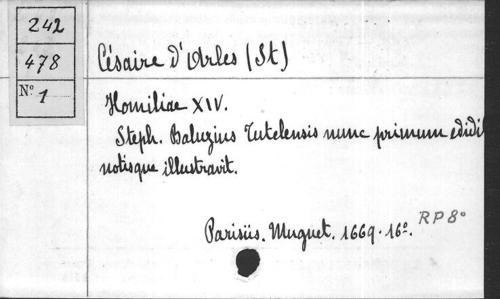 242
478
N° 1
Césaire d'Arles (St)
Homiliae XIV.
Steph. Baluzius Tutelensis nunc primum edidi
notisque illustravit.
Parisiis. Muguet. 1669. 16°. RP 8°